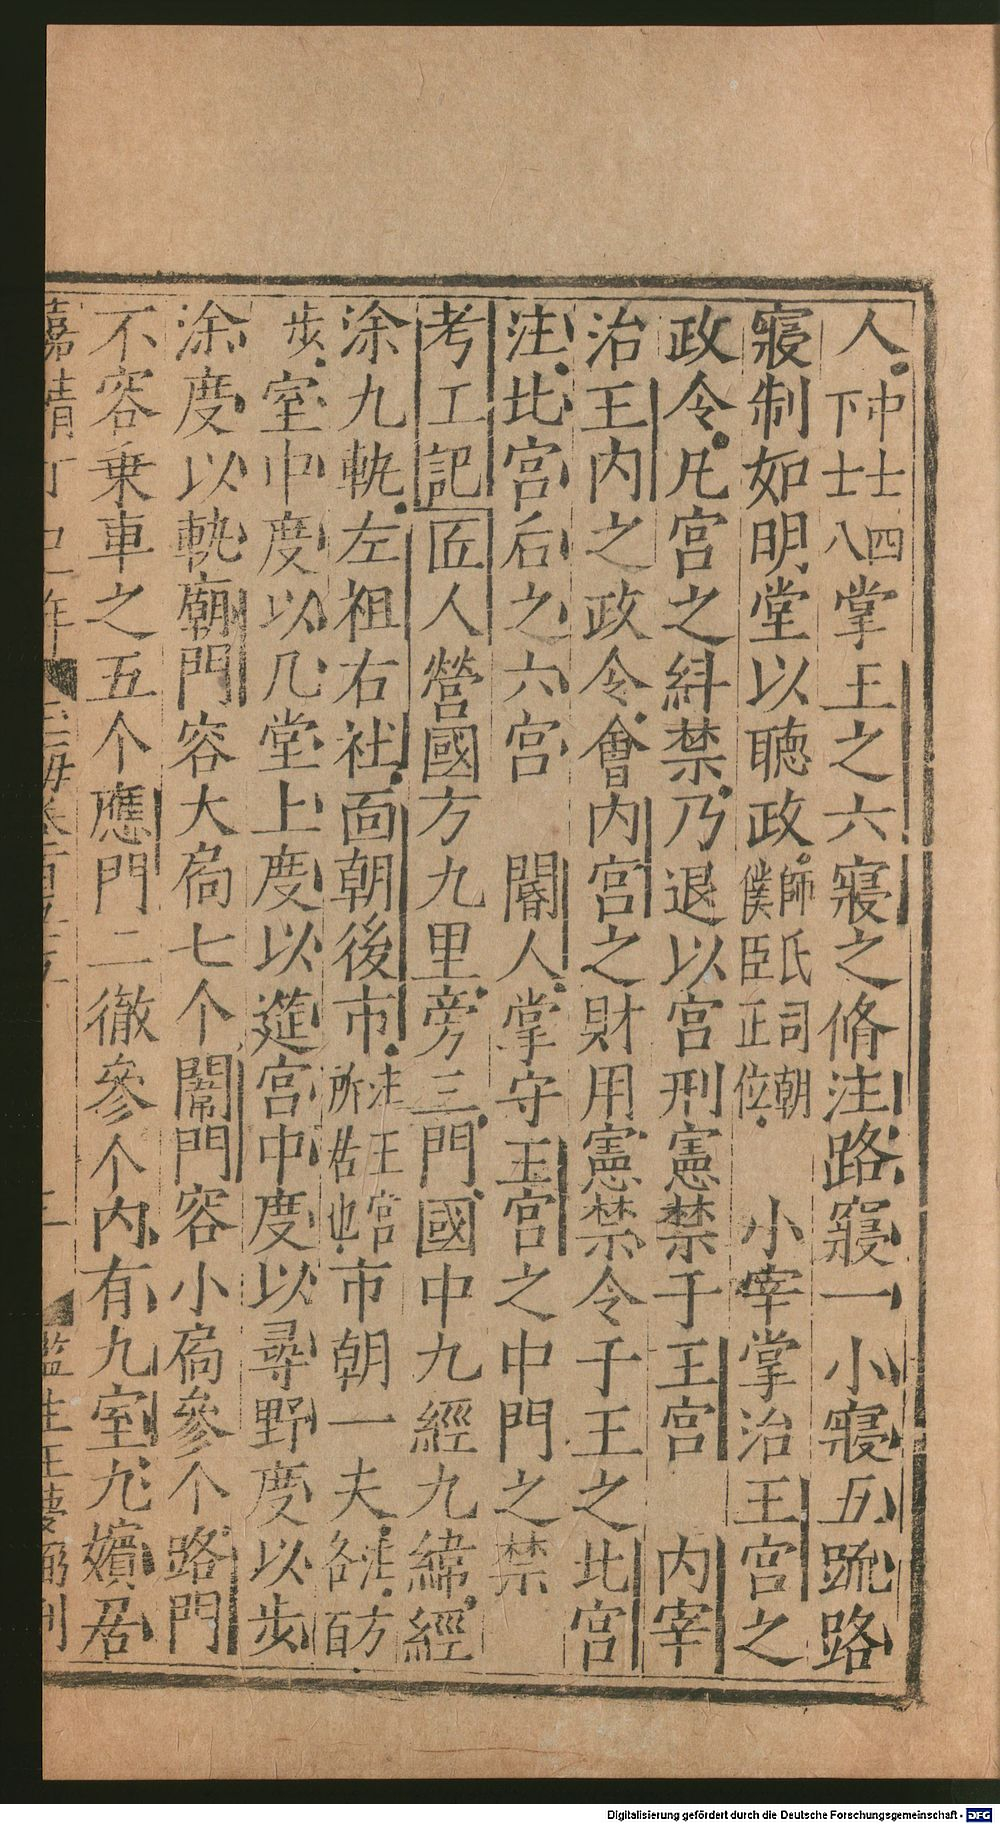 人中士四下士八掌王之六寢之脩注路寢一小寢五䟽路
寢制如明堂以聽政師氏司朝僕臣正位　小宰掌治王宮之
政令凡宮之糾禁乃退以宮刑憲禁于王宮　内宰
治王内之政令會内宮之財用憲禁令于王之北宮
注北宮后之六宮　閽人掌守王宮之中門之禁
考工記匠人營國方九里旁三門國中九經九緯經
涂九軌左祖右社面朝後市注王宮所居也市朝一夫注方各百
步室中度以几堂上度以筵宮中度以尋野度以步
涂度以軌廟門容大扃七个闈門容小扃參个路門
不容乗車之五个應門二徹參个内有九室九嬪居
嘉靖丁巳年　玉海卷百五十五　三　監生王蔞弼刋
Digitalisierung gefördert durch die Deutsche Forschungsgemeinschaft - DFG